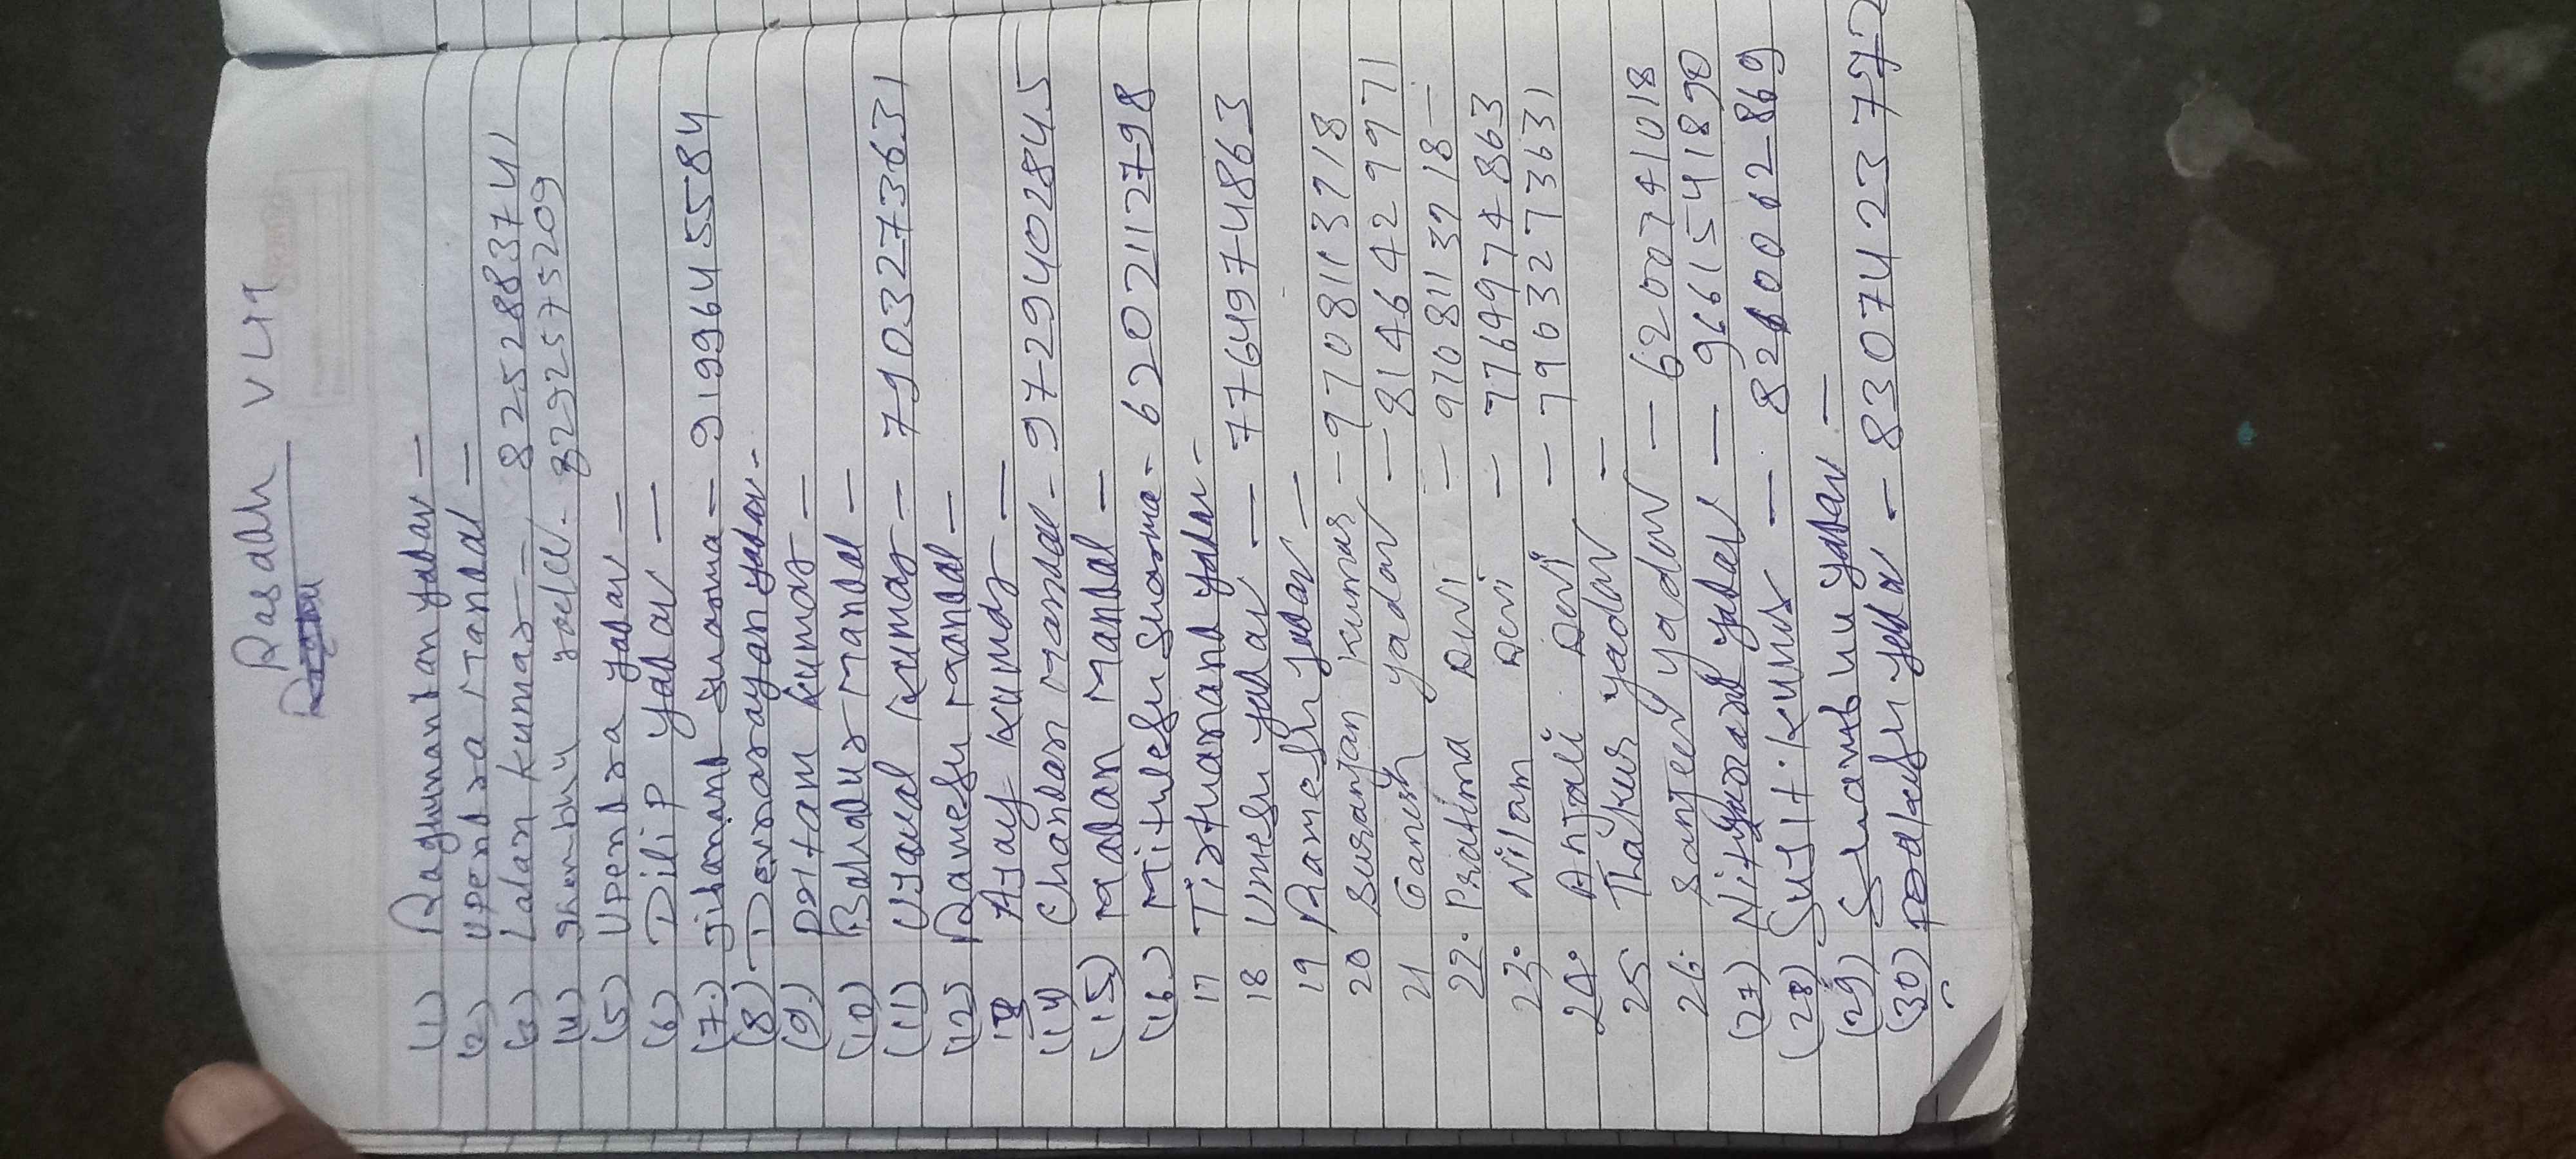 Rasalh VLIA
(1) Raghunandan yadav =
(2) Upendra Mandal =
(3) Lalan kumar = 8252883741
(4) Shembhu yadav - 8292575209
(5) Upendra yadav =
(6) Dilip yadav =
(7.) Jibanand Sharma = 9199645584
(8) Devnarayan yadav -
(9.) Pritam kumar =
(10) Bahadur Mandal =
(11) Ujawal kumar = 7903273631
(12) Ramesh Mandal =
13 Ajay kumar =
(14) Chandan Mandal - 9729402845
(15) Madan Mandal =
(16.) Mithlesh Sharma - 6202112798
17 Tirthanand yadav -
18 Umesh yadav = 7764974863
19 Ramesh yadav =
20 Suranjan kumar - 9708113718
21 Ganesh yadav - 8146429971
22. Pratima Devi - 9708113718 -
23. Nilam Devi - 7764974863
24. Anjali Devi - 7903273631
25 Thakur yadav -
26. Sanjeev yadav - 6200741018
(27) Nityanand yadav - 9661541890
(28) Sujit kumar - 8260012869
(29) Shambhu yadav -
(30) yadav - 8307423757